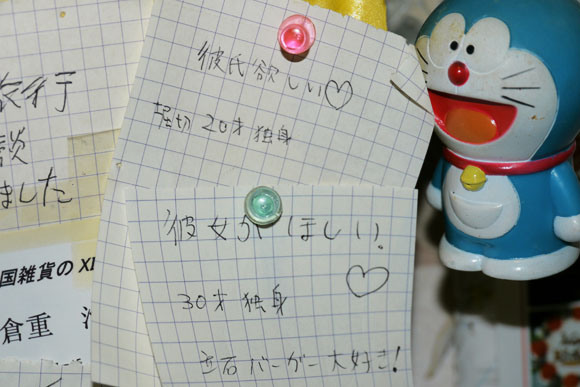 彼氏欲しい♡
堀切 20才 独身
彼女がほしい!
♡
30才 独身
立石バーガー大好き!
談
ました
国雑貨の XI
倉重